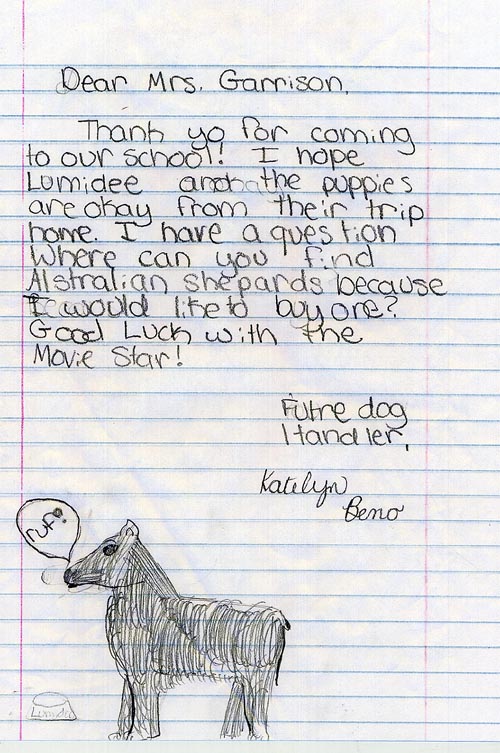 Dear Mrs. Garrison,
Thank yo for coming
to our school! I hope
Lumidee and the puppies
are okay from their trip
home. I have a question
Where can you find
Alstralian shepards because
I would like to buy one?
Good Luck with the
Movie Star!
Futre dog
Handler,
Katelyn
Beno
ruf!
Lumidee